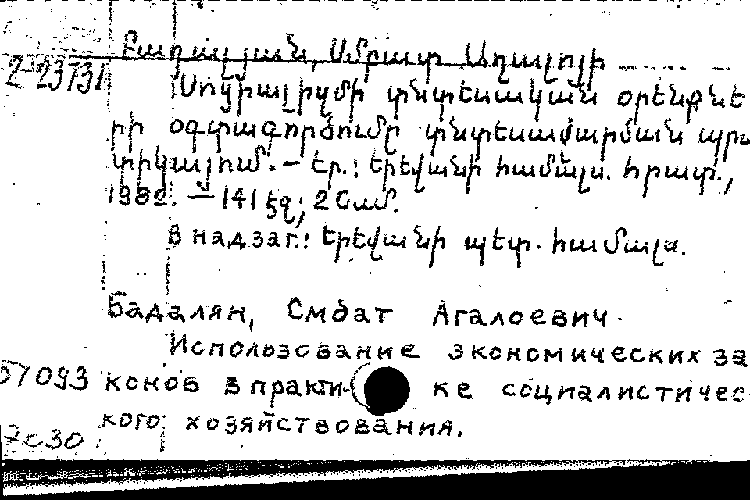 Բադալյան, Սմբատ Աղալոյի
2-23731 Սոցիալիզմի տնտեսական օրենքնե
րի օգտագործումը տնտեսավարման պրակ
տիկայում. — Եր.: Երևանի համալս. հրատ.,
1982. — 141 էջ; 20 սմ.
В надзаг.: Երևանի պետ. համալս.
Бадалян, Смбат Агалоевич.
Использование экономических за
57093 конов в практи- ке социалистичес
кого хозяйствования.